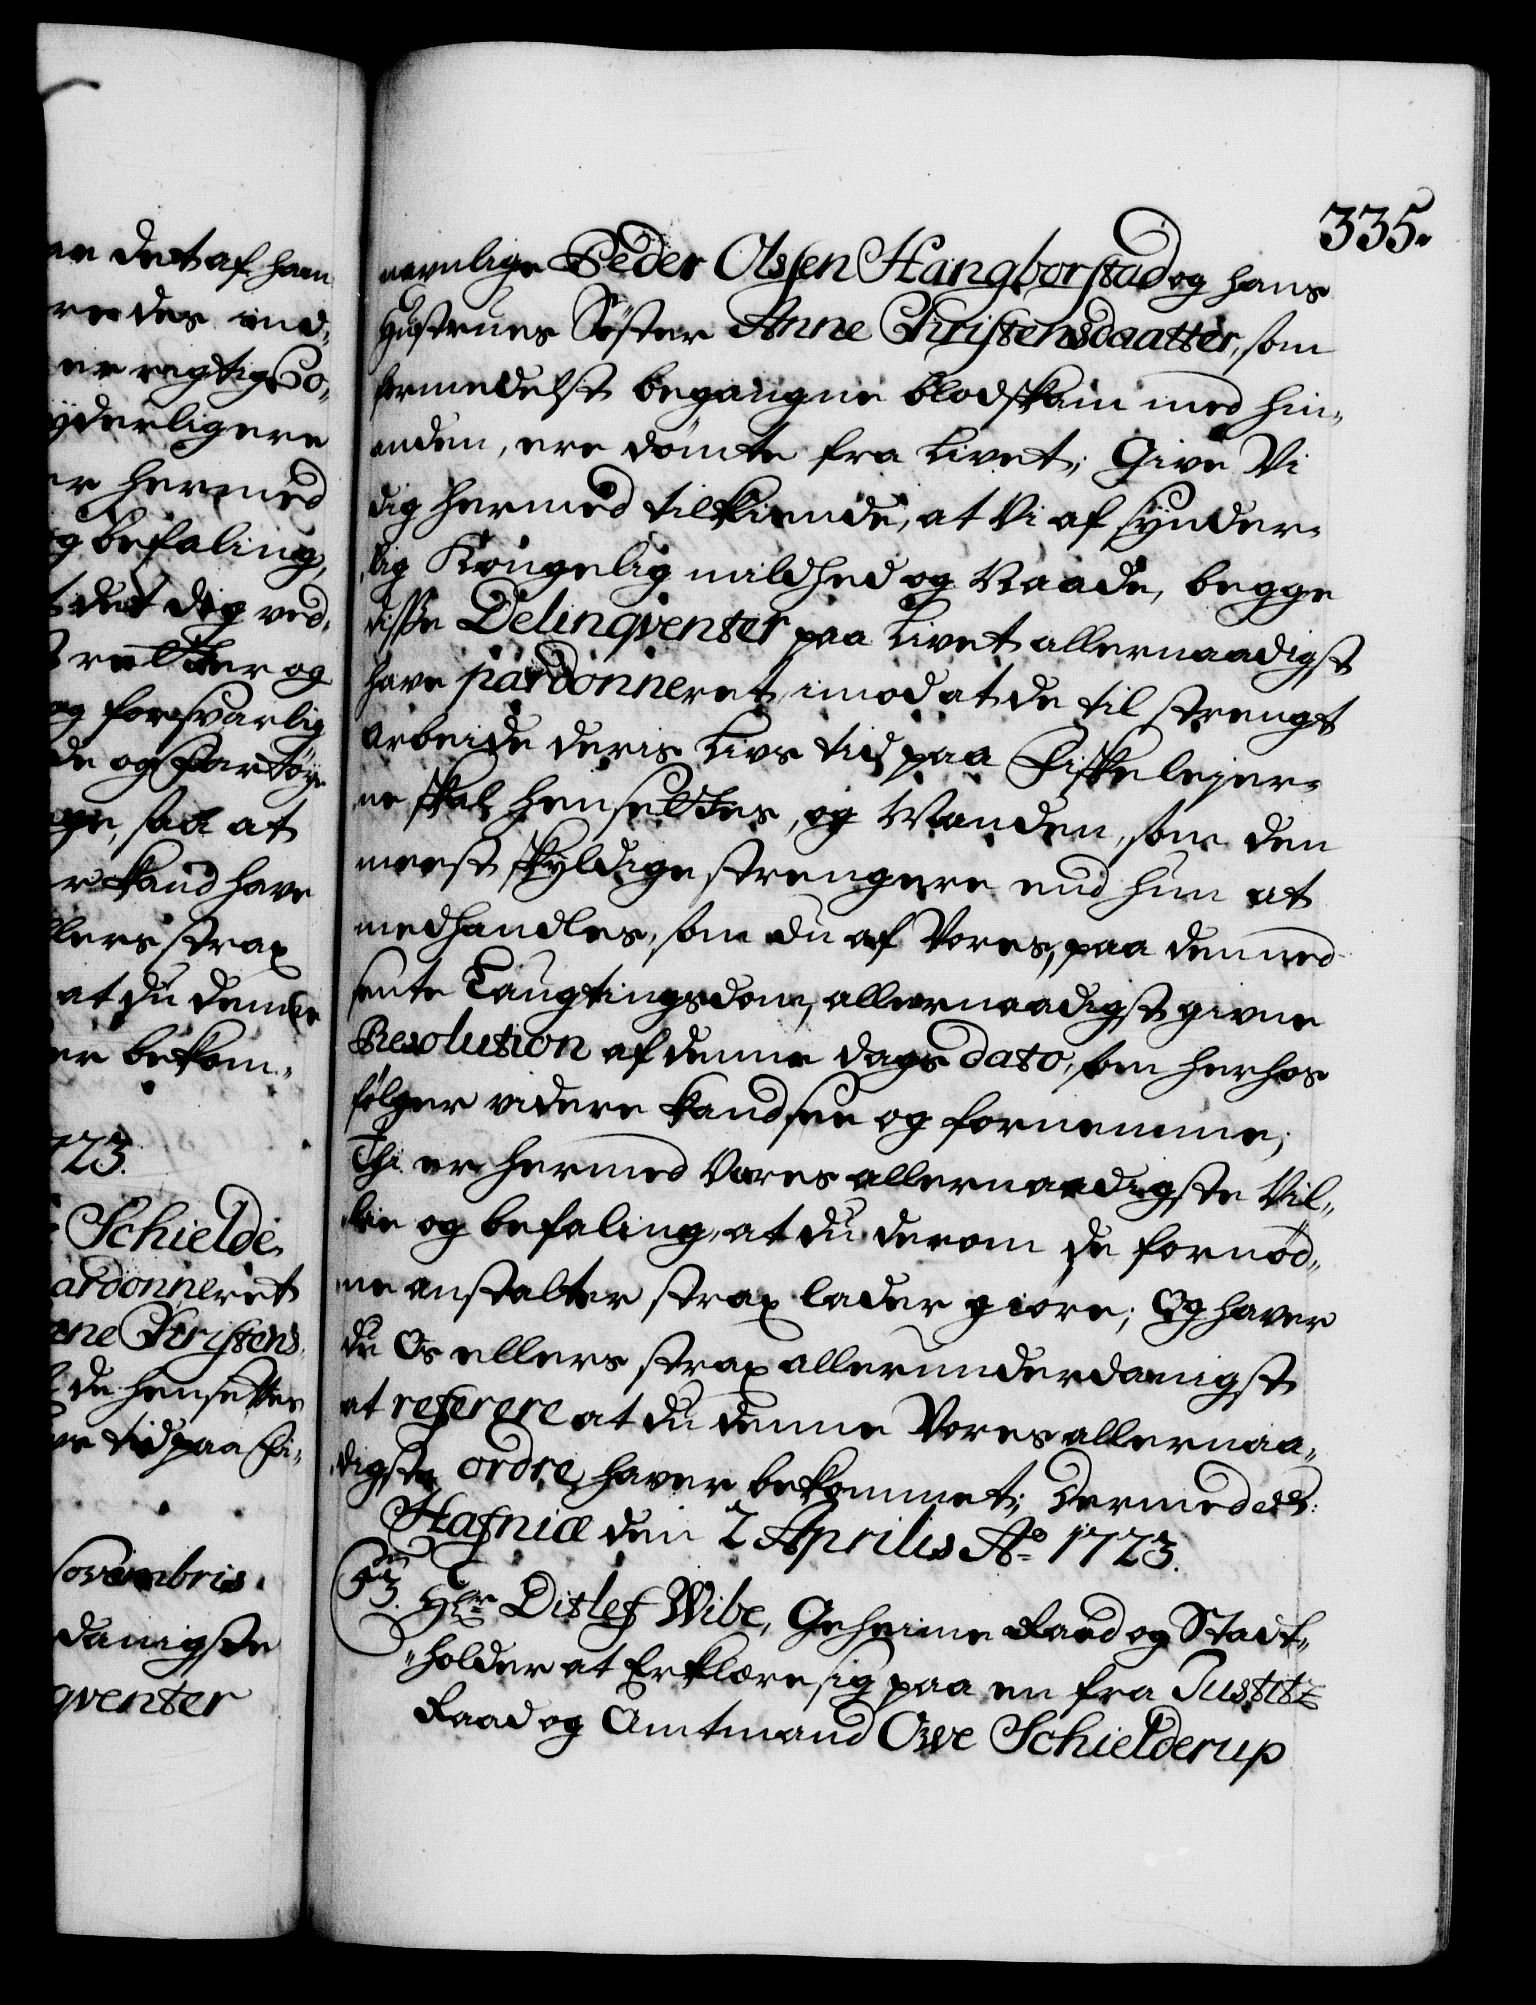 335.
nevnlige Peder Olssen Hangborstad og hans
Hustrues Söster Anne Christensdaatter, som
formedelst begangne blodskam med hin„
anden, ere dömte fra Livet; Give Vi
dig hermed tilkiende, at Vi af synder„
lig Kongelig mildhed og Naade, begge
disse Delinqventer paa Livet allernaadigst
have pardonneret, imod at de til strengt
arbeide deris Livs tid paa Fiskelejer„
ne skal hensettes, og Manden, som den
meest skyldige strengere end hun at
medhandles, som du af Vores, paa den ned
sente Laugtingsdom, allernaadigst givne
Resolution af denne dags dato, som herhos
fölger videre kand see og fornemme;
Thi er hermed Vores allernaadigste Vil„
lie og befaling, at du derom de fornöd„
ne anstalter strax lader giöre; Og haver
du Os ellers strax allerunderdanigst
at referere at du denne Vores allernaa„
digste ordre haver bekommet; Dermed etc:
Hafniæ den 2 Aprilis Ao 1723.
53. Hr Ditlef Wibe, Geheime Raad og Stadt„
holder at Erklære sig paa en fra Justitz
Raad og Amtmand Owe Schielderup
en det af ham
redes ind„
er rigtig Co„
yderligere
er hermed
og befaling,
t det dig ved„
retter og
og forsvarlig
de og Fartöye
ge, saa at
r kand have
llers strax
at du denne
er bekom„
723.
Schielde„
ardonneret
nne Christens„
de hensettes
vs tid paa Fi„
ovembris.
danigste
qventer